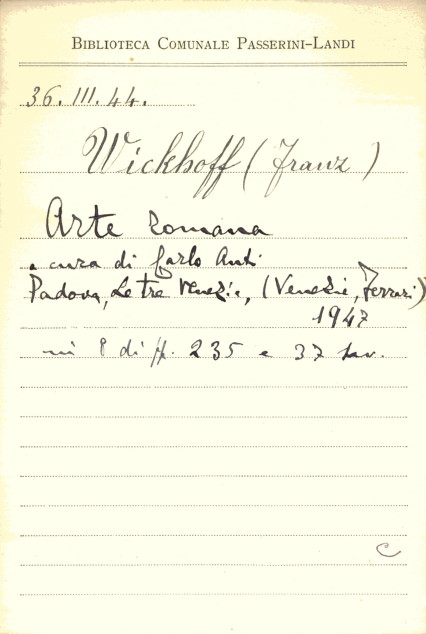 BIBLIOTECA COMUNALE PASSERINI-LANDI
36. III. 44.
Wickhoff (Franz)
Arte romana
a cura di Carlo Anti
Padova, Le tre Venezie, (Venezia, Ferrari)
1947
in 8 di pp. 235 e 37 tav.
C